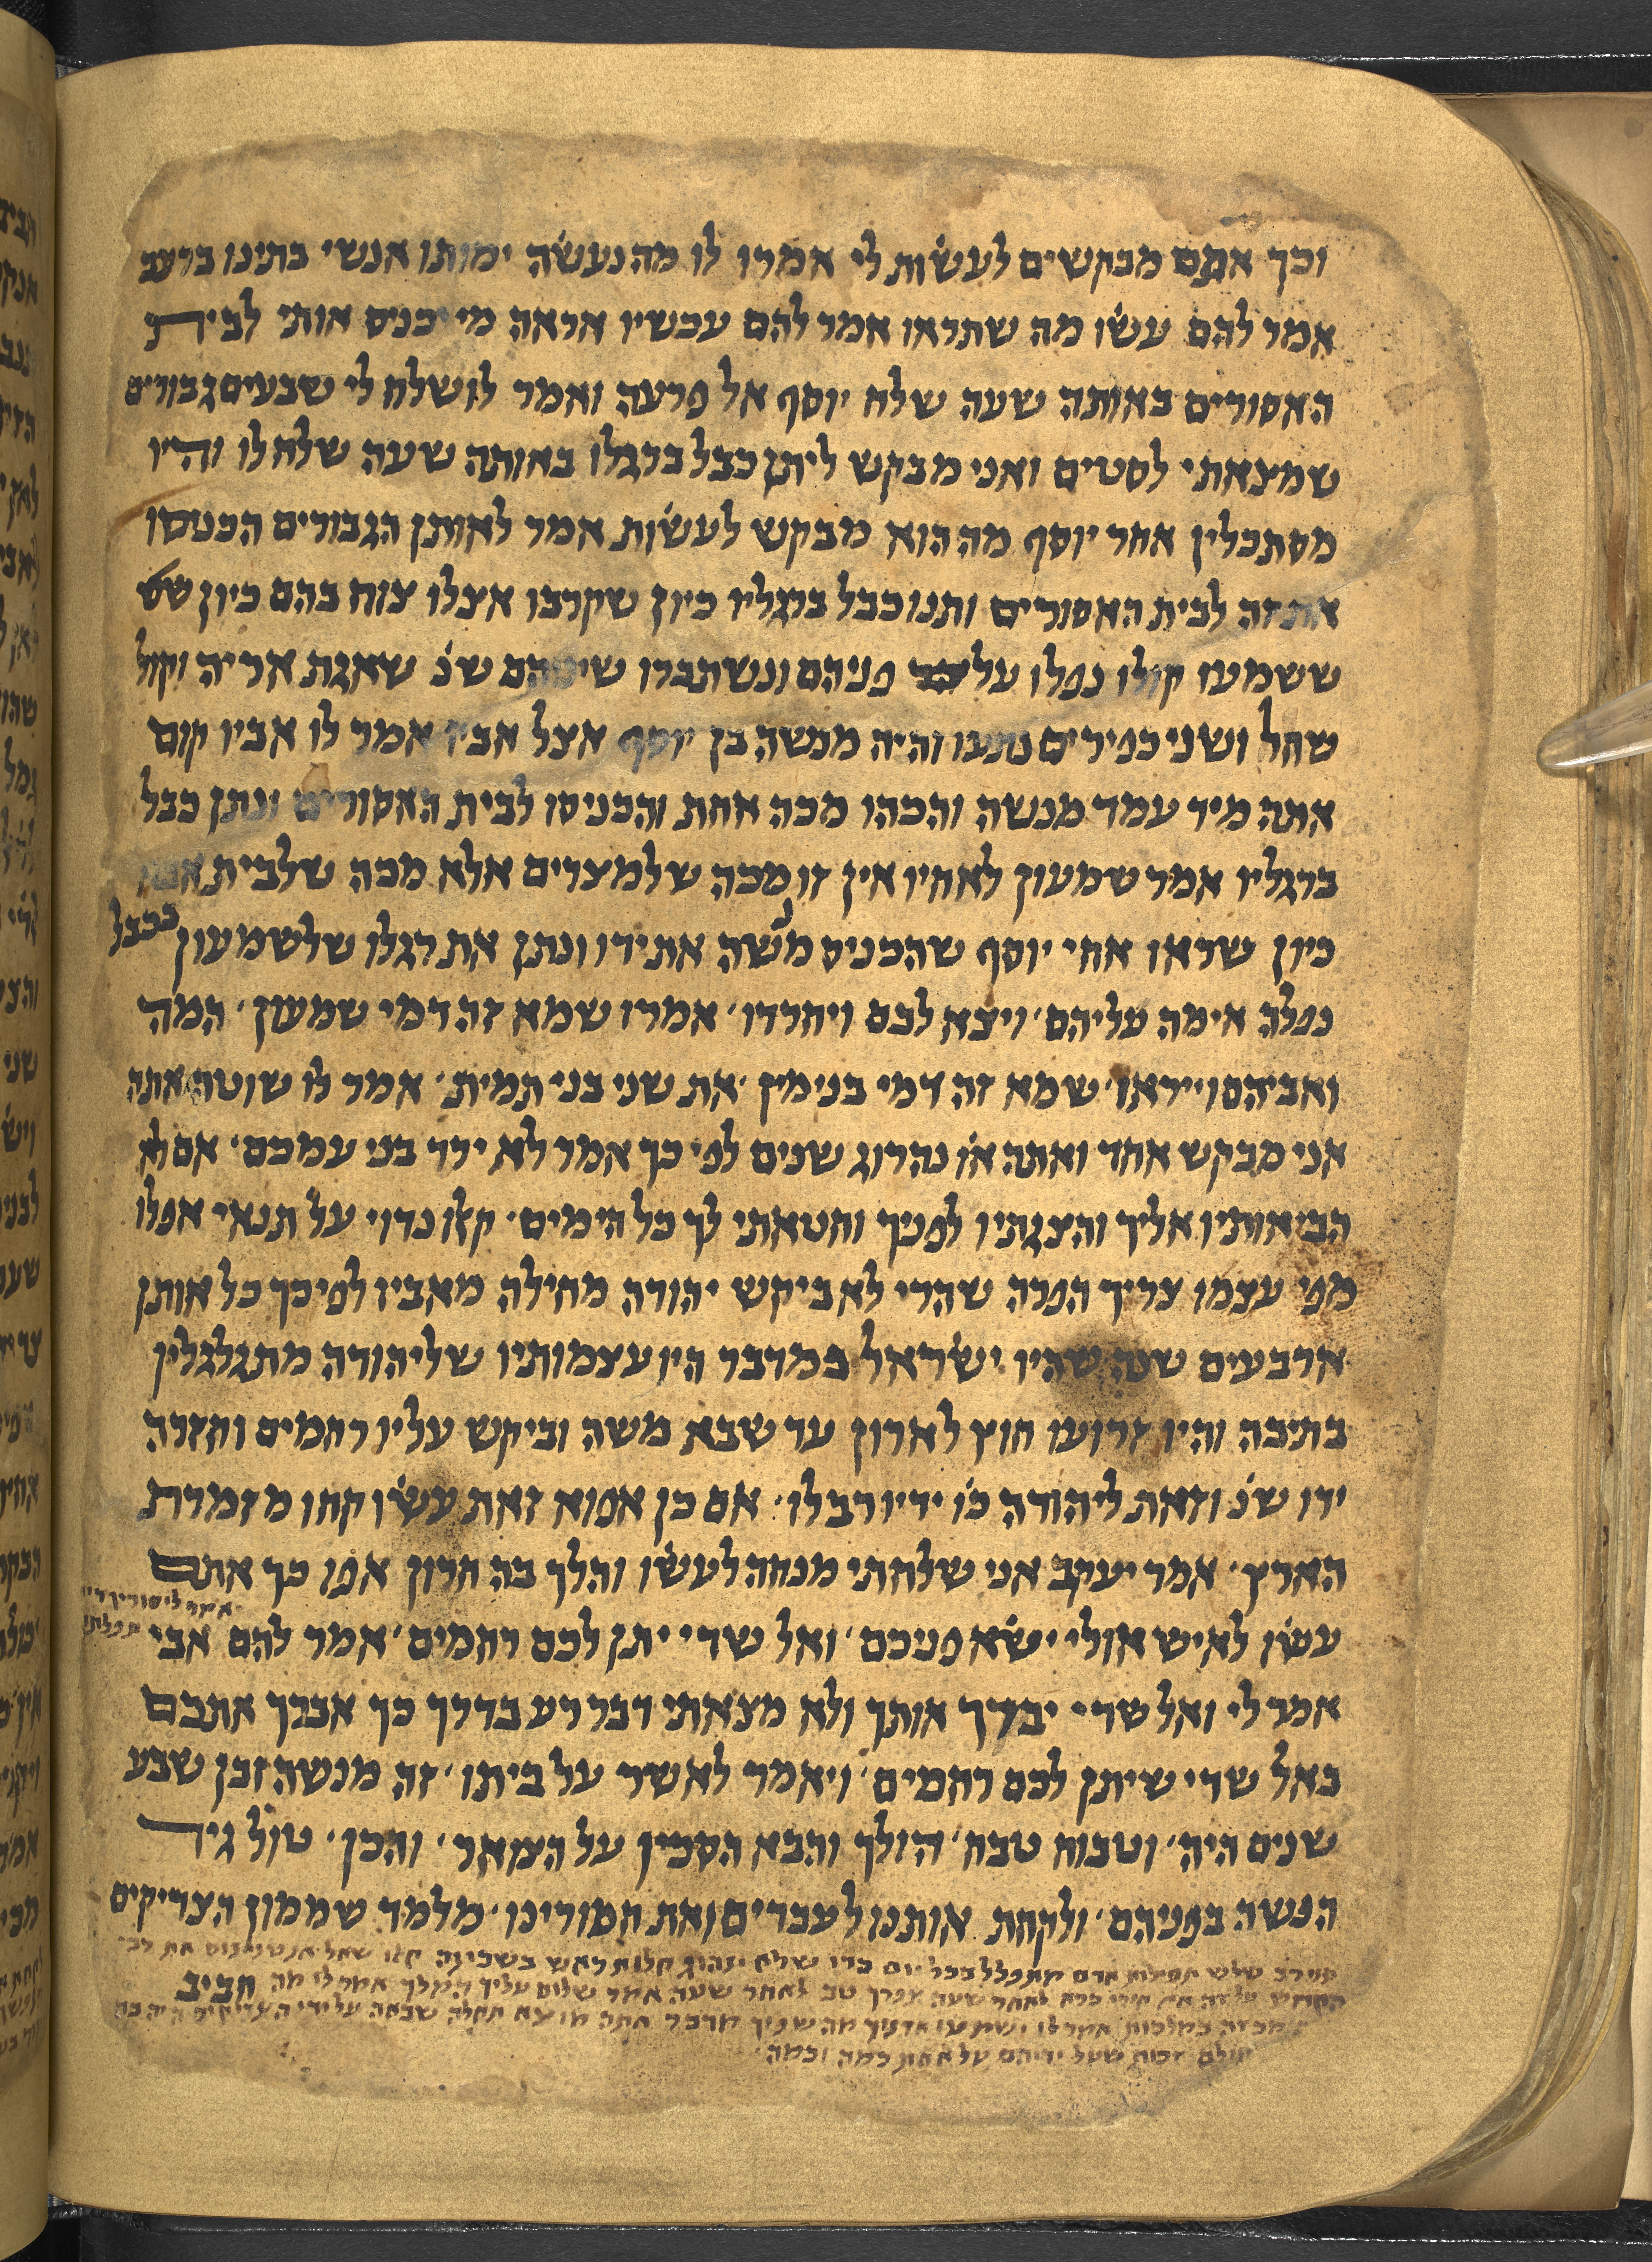 וכך אתם מבקשים לעשות לי אמרו לו מה נעשה ימותו אנשי בתינו ברעב
אמר להם עשו מה שתראו אמר להם עכשיו אראה מי יכניס אותי לבית
האסורים באותה שעה שלח יוסף אל פרעה ואמר לו שלח לי שבעים גבורים
שמצאתי לסטים ואני מבקש ליתן כבל ברגלו באותה שעה שלח לו והיו
מסתכלין אחר יוסף מה הוא מבקש לעשות אמר לאותן הגבורים הכנסו
את זה לבית האסורים ותנו כבל ברגליו כיון שקרבו אצלו צוח בהם כיון
ששמעו קולו נפלו על פניהם ונשתברו שיניהם שנ׳ שאגת אריה וקול
שחל ושני כפירים נתעו והיה מנשה בן יוסף אצל אביו אמר לו אביו קום
אתה מיד עמד מנשה והכהו מכה אחת והכניסו לבית האסורים ונתן כבל
ברגליו אמר שמעון לאחיו אין זו מכה שלמצרים אלא מכה שלבית אבא
כיון שראו אחי יוסף שהכניס מנשה את ידו ונתן את רגלו שלשמעון בכבל
נפלה אימה עליהם׳ ויצא לבם ויחרדו׳ אמרו שמא זה דמי שמעון׳ המה
ואביהם וייראו׳ שמא זה דמי בנימין ׳את שני בני תמית׳ אמר לו שוטה אתה
אני מבקש אחד ואתה או׳ נהרוג שנים לפי כך אמר לא ירד בני עמכם׳ אם לא
הביאותיו אליך והצגתיו לפניך וחטאתי לך כל הימים׳ מכאן נדוי על תנאי אפלו
מפי עצמו צריך הפרה שהרי לא ביקש יהודה מחילה מאביו לפיכך כל אותן
ארבעים שנה שהיו ישראל במדבר היו עצמותיו שליהודה מתגלגלין
בתיבה והיו זרועו חוץ לארון עד שבא משה וביקש עליו רחמים וחזרה
ידו שנ׳ וזאת ליהודה כו׳ ידיו רב לו׳ אם כן אפוא זאת עשו קחו מזמרת
הארץ׳ אמר יעקב אני שלחתי מנחה לעשו והלך בה חרון אפו כך אתם
עשו לאיש אולי ישא פניכם׳ ואל שדי יתן לכם רחמים׳ אמר להם אבי
אמר לי ואל שדי יברך אותך ולא מצאתי דבר רע בדרך כך אברך אתכם
באל שדי שיתן לכם רחמים׳ ויאמר לאשר על ביתו׳ זה מנשה ובן שבע
שנים היה׳ וטבוח טבח׳ הולך והבא הסכין על הצואר׳ והכן׳ טול גיד
הנשה בפניהם׳ ולקחת אותנו לעבדים ואת חמורינו׳ מלמד שממון הצדיקים
שלש תפלות אדם מתפלל בכל יום כדי שלא ינהוג קלות ראש בשכינה שאל אנטונינוס את רבי
לאחר שעה אמר שלום עליך המלך אמר לו מה
חביב